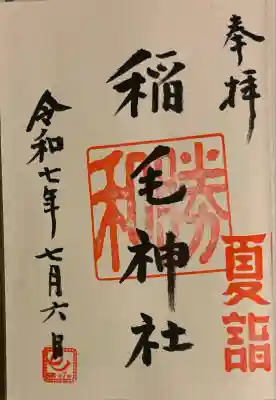 奉拝
夏詣
稲毛神社
勝
和
令和七年七月六日